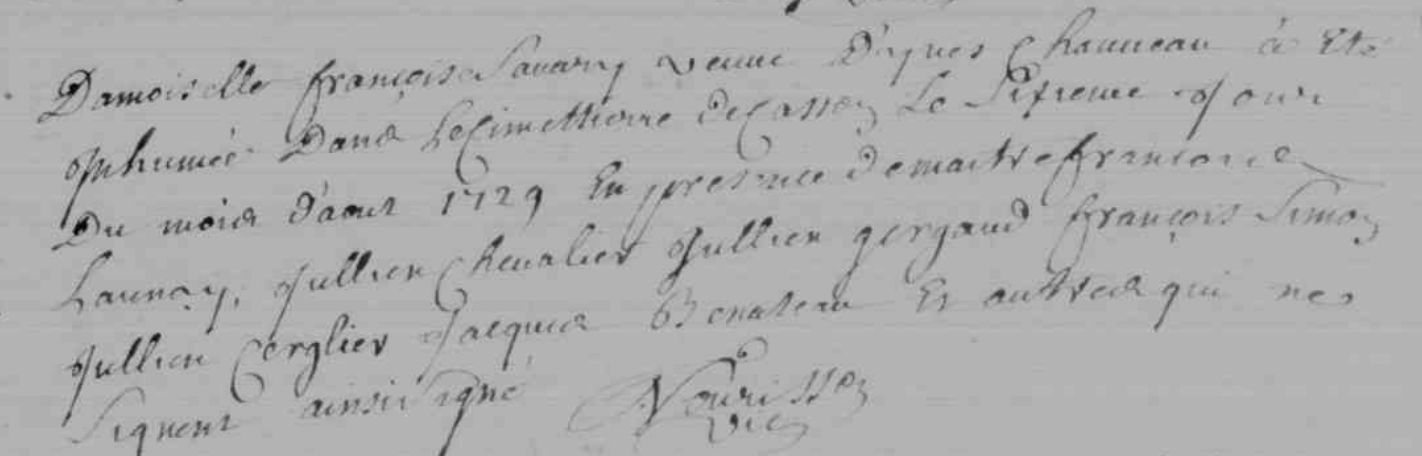 Damoiselle françoise Savary veuve d'ynes Chauneau a Eté
Inhumée Dans Le Cimettierre de Casson Le Sixieme Jour
Du mois d'aout 1729 En presence de maitre francois
Launay, Jullien Chevalier Jullien gergaud françois Simon
Jullien Cerglier Jacques Benateau Et autres qui ne
Signent ainsi signé Nourisson
vic